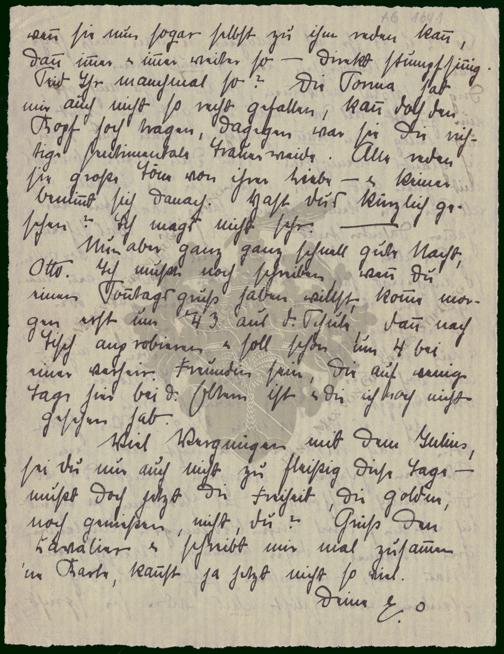 wen̄ sie nun sogar selbst zu ihm reden kan̄,
dan̄ im̄er & im̄er weiter so — direkt stumpfsinnig.
Seid Ihr manchmal so? Die Torma hat
mir auch nicht so recht gefallen, kan̄ doch den
Kopf hoch tragen, dagegen war sie die rich-
tige sentimentale Trauerweide. Alle reden
sie große Töne von ihrer Liebe — & keiner
benim̄t sich danach. Hast Du's kürzlich ge-
sehen? Ich mag's nicht sehr.
Nun aber ganz ganz schnell gute Nacht,
Otto. Ich mußte noch schreiben wen̄ Du
einen Sonntagsgruß haben willst, kom̄e mor-
gen erst um 43 aus d. Schule, dan̄ nach
Tisch anprobieren & soll schon um 4 bei
einer Freundin sein, die auf wenige
Tage hier bei d. Eltern ist & die ich noch nicht
gesehen hab.
Viel Vergnügen mit dem Julius,
sei Du mir auch nicht zu fleißig diese Tage —
mußt doch jetzt die Freiheit, die goldene,
noch genießen, nicht, Du? Grüß den
Kavalier & schreibt mir mal zusam̄en
'ne Karte, kan̄st ja jetzt nicht so viel.
Deine E.